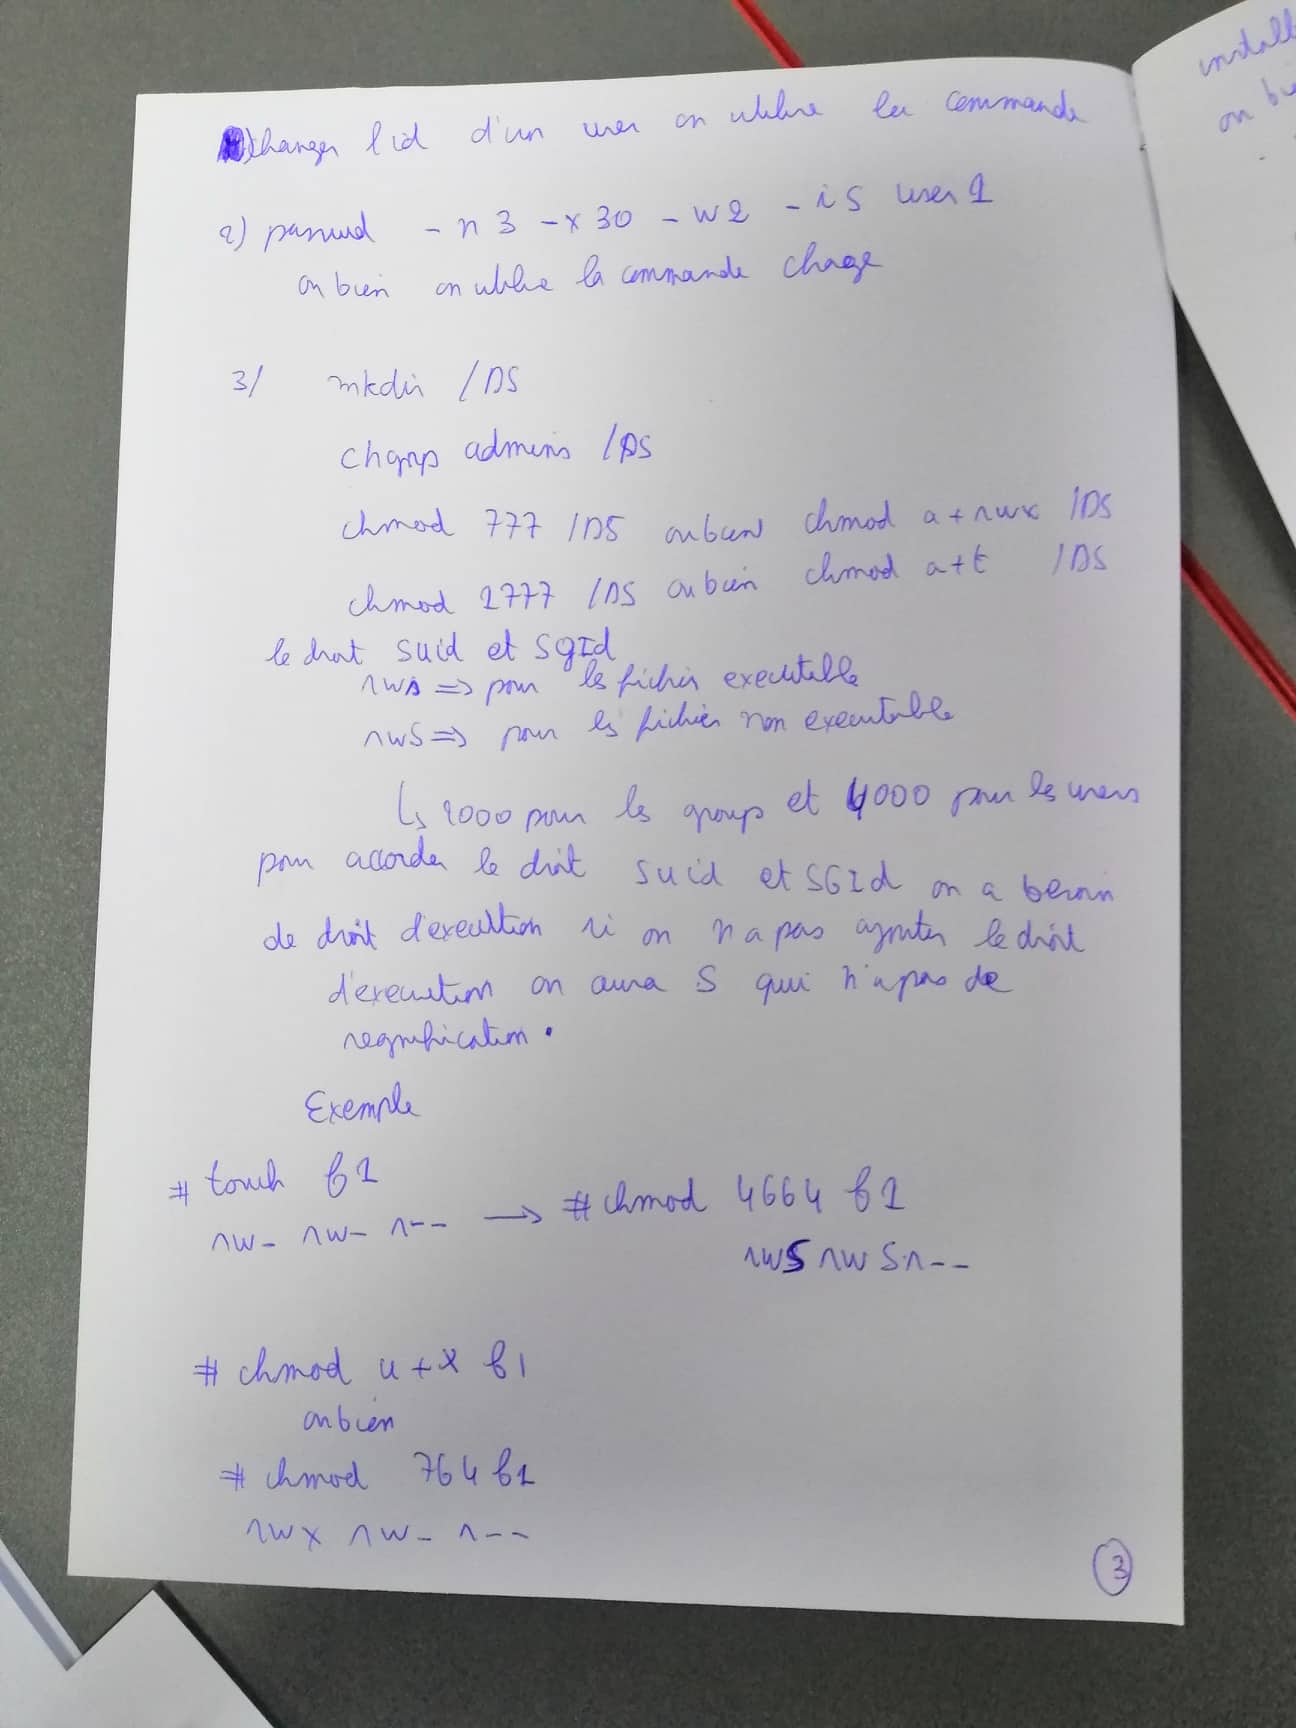 changer l'id d'un user on utilise la commande
2) passwd -n 3 -x 30 -w 2 -i 5 user 1
ou bien on utilise la commande chage
3/ mkdir /DS
chgrp admins /DS
chmod 777 /DS ou bien chmod a+rwx /DS
chmod 1777 /DS ou bien chmod a+t /DS
le droit suid et SGId
rws => pour les fichier executable
rwS => pour les fichier non executable
↳ 2000 pour les group et 4000 pour les users
pour accorder le droit suid et SGId on a besoin
de droit d'execution si on n'a pas ajouter le droit
d'execution on aura S qui n'a pas de
segnification.
Exemple
# touch f1
rw- rw- r-- → # chmod 4664 f1
rwS rwSr--
# chmod u+x f1
ou bien
# chmod 764 f1
rwx rw- r--
3
install
ou bi